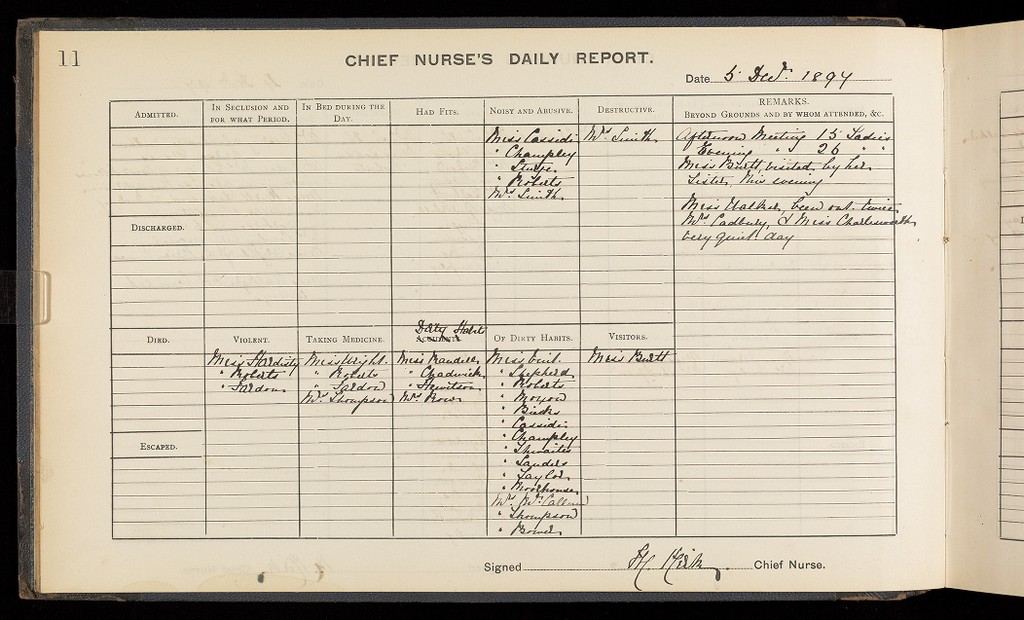 11
CHIEF NURSE'S DAILY REPORT.
Date 5 Decr. 1894
ADMITTED.
IN SECLUSION AND FOR WHAT PERIOD.
IN BED DURING THE DAY.
HAD FITS.
NOISY AND ABUSIVE.
DESTRUCTIVE.
REMARKS.
BEYOND GROUNDS AND BY WHOM ATTENDED, &c.
Miss Cassidi
" Champley
" Sturge
" Roberts
Mrs. Smith
Mrs. Smith
Afternoon Meeting 15 Ladies
Evening " 26 "
Miss Burtt, visited by her
Sister, this evening
Miss Walker, been out twice
Mrs Padbury, & Miss Charlesworth
very quiet day
DISCHARGED.
DIED.
VIOLENT.
TAKING MEDICINE.
Dirty Habits
OF DIRTY HABITS.
VISITORS.
Miss Hardisty
" Roberts
" Fardon
Miss Wright
" Roberts
" Fardon
Mrs Thompson
Miss Randell
" Chadwick
" Hewitson
Mrs Rowe
Miss
" Shepherd
" Roberts
" Moxon
" Binks
" Cassidi
" Champley
" Thwaites
" Sanders
" Taylor
" Moorhouse
Mrs. McCallum
" Thompson
" Bower
Miss Burtt
ESCAPED.
Signed H. Kirk Chief Nurse.